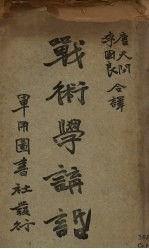 唐天閑
李國良 合譯
戰術學講話
軍用圖書社發行